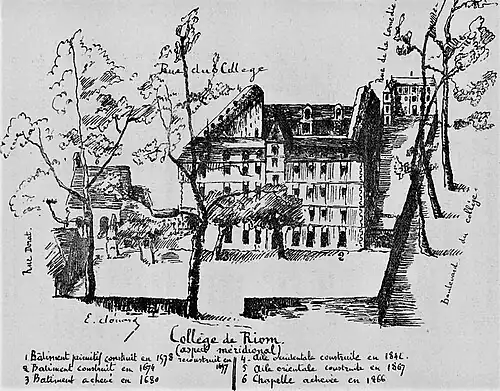 Rue du College
Rue de la Comédie
Rue Dorat
Boulevard du Collège
3
2
Collège de Riom
(aspect méridional)
1 Bâtiment primitif construit en 1578 reconstruit en
2 Batiment construit en 1676
3 Batiment achevé en 1680
4. Aile occidentale construite en 1841.
5 Aile orientale construite en 1867
6 Chapelle achevée en 1866